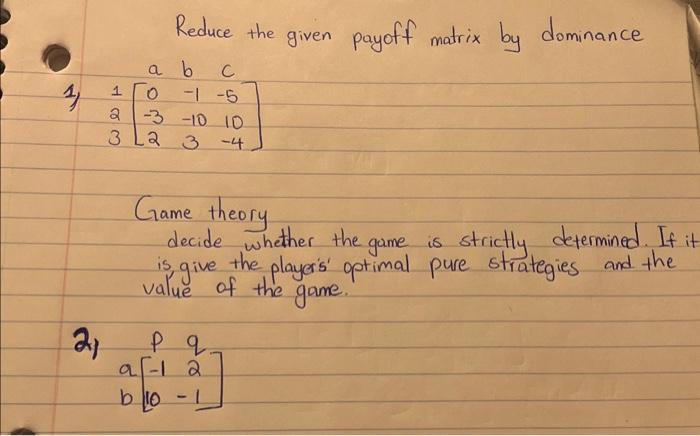 Reduce the given payoff matrix by dominance
a b c
1) 1 [0 -1 -5]
2 [-3 -10 10]
3 [2 3 -4]
Game theory
decide whether the game is strictly determined. If it
is, give the player's' optimal pure strategies and the
value of the game.
2) p q
a [-1 2]
b [10 -1]